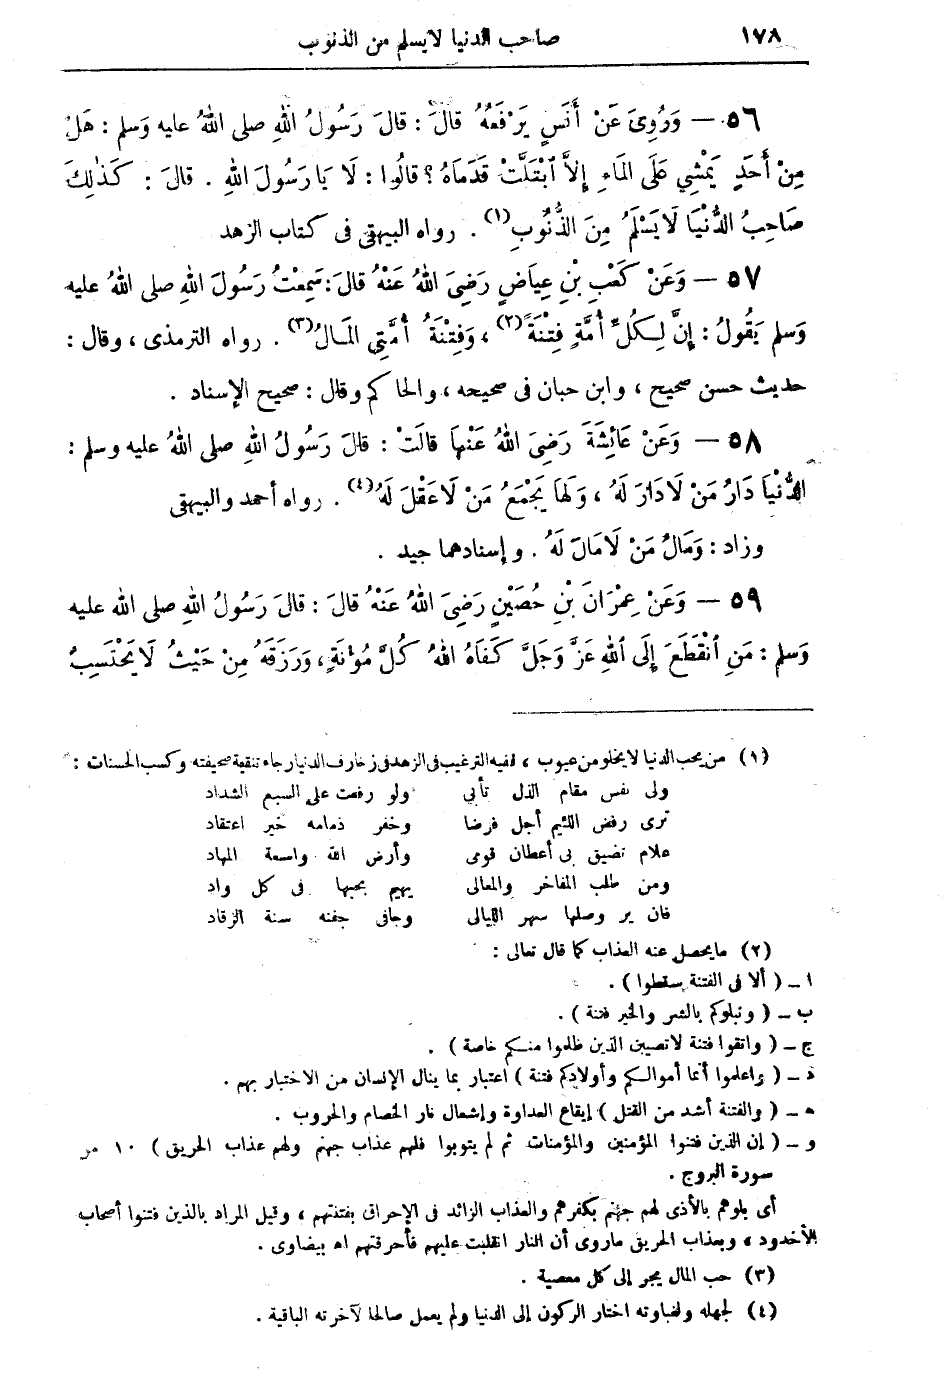 ١٧٨ صاحب الدنيا لا يسلم من الذنوب
٥٦ — وَرُوِىَ عَنْ أَنَسٍ يَرْفَعُهُ قالَ : قالَ رَسُولُ اللهِ صلى اللهُ عليه وَسلم : هَلْ
مِنْ أَحَدٍ يَمْشِي عَلَى المَاءِ إِلاَّ ٱبْتَلَّتْ قَدَمَاهُ ؟ قالُوا : لَا يَا رَسُولَ اللهِ . قالَ : كَذٰلِكَ
صَاحِبُ الدُّنْيَا لَا يَسْلَمُ مِنَ الذُّنُوبِ(١) . رواه البيهقى فى كتاب الزهد
٥٧ — وَعَنْ كَعْبِ بْنِ عِيَاضٍ رَضِىَ اللهُ عَنْهُ قالَ : سَمِعْتُ رَسُولَ اللهِ صلى اللهُ عليه
وَسلم يَقُولُ : إِنَّ لِكُلِّ أُمَّةٍ فِتْنَةً(٢) ، وَفِتْنَةُ أُمَّتِي الْمَالُ(٣) . رواه الترمذى ، وقال :
حديث حسن صحيح ، وابن حبان فى صحيحه ، والحاكم وقال : صحيح الإسناد .
٥٨ — وَعَنْ عَائِشَةَ رَضِىَ اللهُ عَنْهَا قالَتْ : قالَ رَسُولُ اللهِ صلى اللهُ عليه وسلم :
الدُّنْيَا دَارُ مَنْ لَا دَارَ لَهُ ، وَلَهَا يَجْمَعُ مَنْ لَا عَقْلَ لَهُ(٤) . رواه أحمد والبيهقى
وزاد : وَمَالُ مَنْ لَا مَالَ لَهُ . وإسنادهما جيد .
٥٩ — وَعَنْ عِمْرَانَ بْنِ حُصَيْنٍ رَضِىَ اللهُ عَنْهُ قالَ : قالَ رَسُولُ اللهِ صلى الله عليه
وَسلم : مَنِ ٱنْقَطَعَ إِلَى اللهِ عَزَّ وَجَلَّ كَفَاهُ اللهُ كُلَّ مُؤْنَةٍ ، وَرَزَقَهُ مِنْ حَيْثُ لَا يَحْتَسِبُ
(١) من يحب الدنيا لا يخلو من عيوب ، ففيه الترغيب فى الزهد فى زخارف الدنيا رجاء تنقية صحيفته وكسب الحسنات :
ولى نفس مقام الذل تأبى ولو رفعت على السبع الشداد
ترى رفض اللئيم أجل فرضا وخفر ذمامه خير اعتقاد
علام تضيق بى أعطان قومى وأرض الله واسعة المهاد
ومن طلب المفاخر والمعالى يهيم بحبها فى كل واد
فان ير وصلها سهر الليالى وجافى جفنه سنة الرقاد
(٢) ما يحصل عنه العذاب كما قال تعالى :
ا ـ ( ألا فى الفتنة سقطوا ) .
ب ـ ( ونبلوكم بالشر والخير فتنة ) .
ج ـ ( واتقوا فتنة لا تصيبن الذين ظلموا منكم خاصة ) .
د ـ ( واعلموا أنما أموالكم وأولادكم فتنة ) اعتبار بما ينال الإنسان من الاختبار بهم .
ه ـ ( والفتنة أشد من القتل ) إيقاع العداوة وإشعال نار الخصام والحروب .
و ـ ( إن الذين فتنوا المؤمنين والمؤمنات ثم لم يتوبوا فلهم عذاب جهنم ولهم عذاب الحريق ) ١٠ من
سورة البروج .
أى بلوهم بالأذى لهم جهنم بكفرهم والعذاب الزائد فى الإحراق بفتنتهم ، وقيل المراد بالذين فتنوا أصحاب
الأخدود ، وبعذاب الحريق ماروى أن النار انقلبت عليهم فأحرقتهم اه بيضاوى .
(٣) حب المال يجر إلى كل معصية .
(٤) لجهله ولغباوته اختار الركون إلى الدنيا ولم يعمل صالحا لآخرته الباقية .